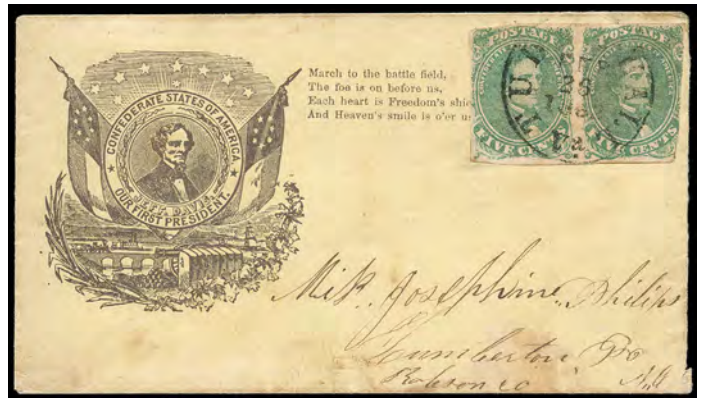 CONFEDERATE STATES OF AMERICA
JEFF. DAVIS.
OUR FIRST PRESIDENT.
March to the battle field,
The foe is on before us,
Each heart is Freedom's shie
And Heaven's smile is o'er us
POSTAGE
FIVE CENTS
POSTAGE
FIVE CENTS
25
Va
Miss. Josephine Philips
Lumberton Po
Robeson co N.C